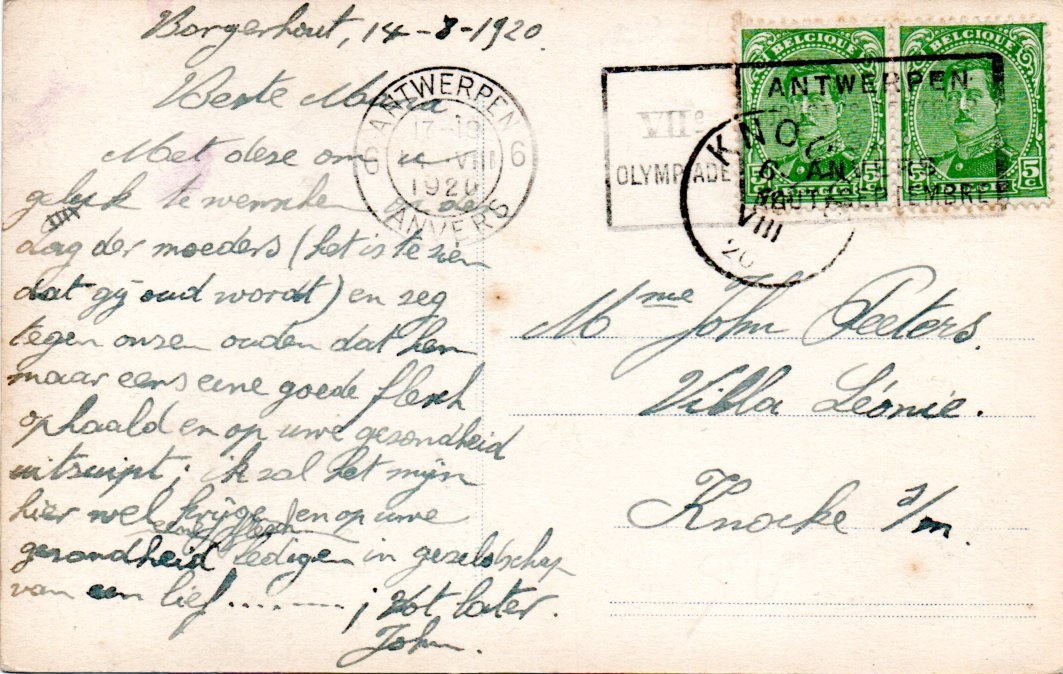 Borgerhout, 14-8-1920.
Beste Mama
Met dese om u
geluk te wenschen in de
dag der moeders (het is te zien
dat gij oud wordt) en zeg
tegen onzen ouden dat hen
maar eens eene goede flesch
ophaald en op uwe gezondheid
uitzuipt; ik zal het mijn
hier wel krijgen en op uwe
eene flesch
gezondheid ledigen in gezelschap
van een lief ......... ; tot later.
John.
ANTWERPEN
6 6
17-18
14 VIII
1920
ANVERS
VIIe
OLYMPIADE
ANTWERPEN
ANVERS
AOUT-SEPTEMBRE
KNO
6
VIII
20
BELGIQUE
5c 5c
BELGIQUE
5c 5c
Mme John Peeters.
Villa Léonie.
Knocke s/m.